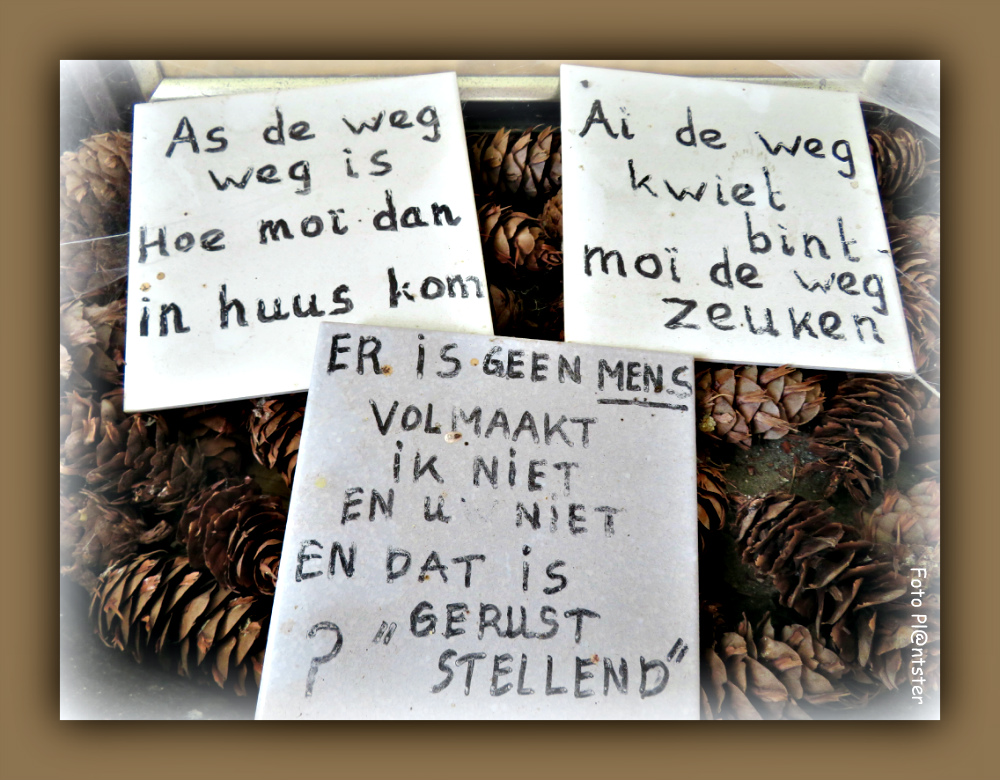 As de weg
weg is
Hoe moï dan
in huus kom
Ai de weg
kwiet
bint-
moï de weg
zeuken
ER IS GEEN MENS
VOLMAAKT
iK NiET
EN u NiET
EN DAT iS
? „GERUST
STELLEND"
Foto Pl@ntster